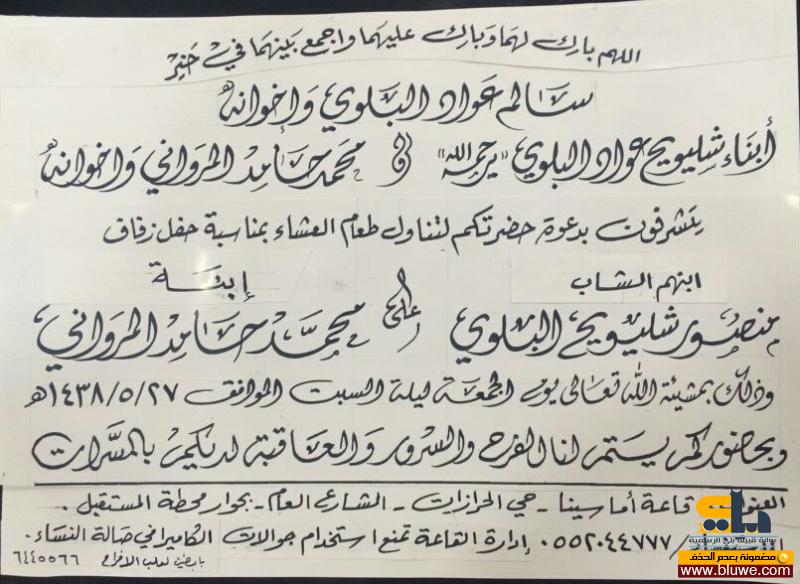 اللهم بارك لهما وبارك عليهما واجمع بينهما في خير
سالم عواد البلوي وإخوانه
أبناء شليويح عواد البلوي "يرحمه الله" و محمد حامد المرواني وإخوانه
يتشرفون بدعوة حضرتكم لتناول طعام العشاء بمناسبة حفل زفاف
ابنهم الشاب
إبنة
منصور شليويح البلوي على محمد حامد المرواني
وذلك بمشيئة الله تعالى يوم الجمعة ليلة السبت الموافق ١٤٣٨/٥/٢٧هـ
وبحضوركم يستمر لنا الفرح والسرور والعاقبة لديكم بالمسرات
العنوان قاعة أماسينا - حي الحرازات - الشارع العام - بجوار محطة المستقبل.
٠٥٥٢٠٤٤٧٧٧ // إدارة القاعة تمنع استخدام جوالات الكاميرا في صالة النساء.
لعلب الأفراح ٦٤٤٥٥٦٦
بلي
بوابة قبيلة بلي الرسمية
مضمونة بعدم الحذف
www.bluwe.com